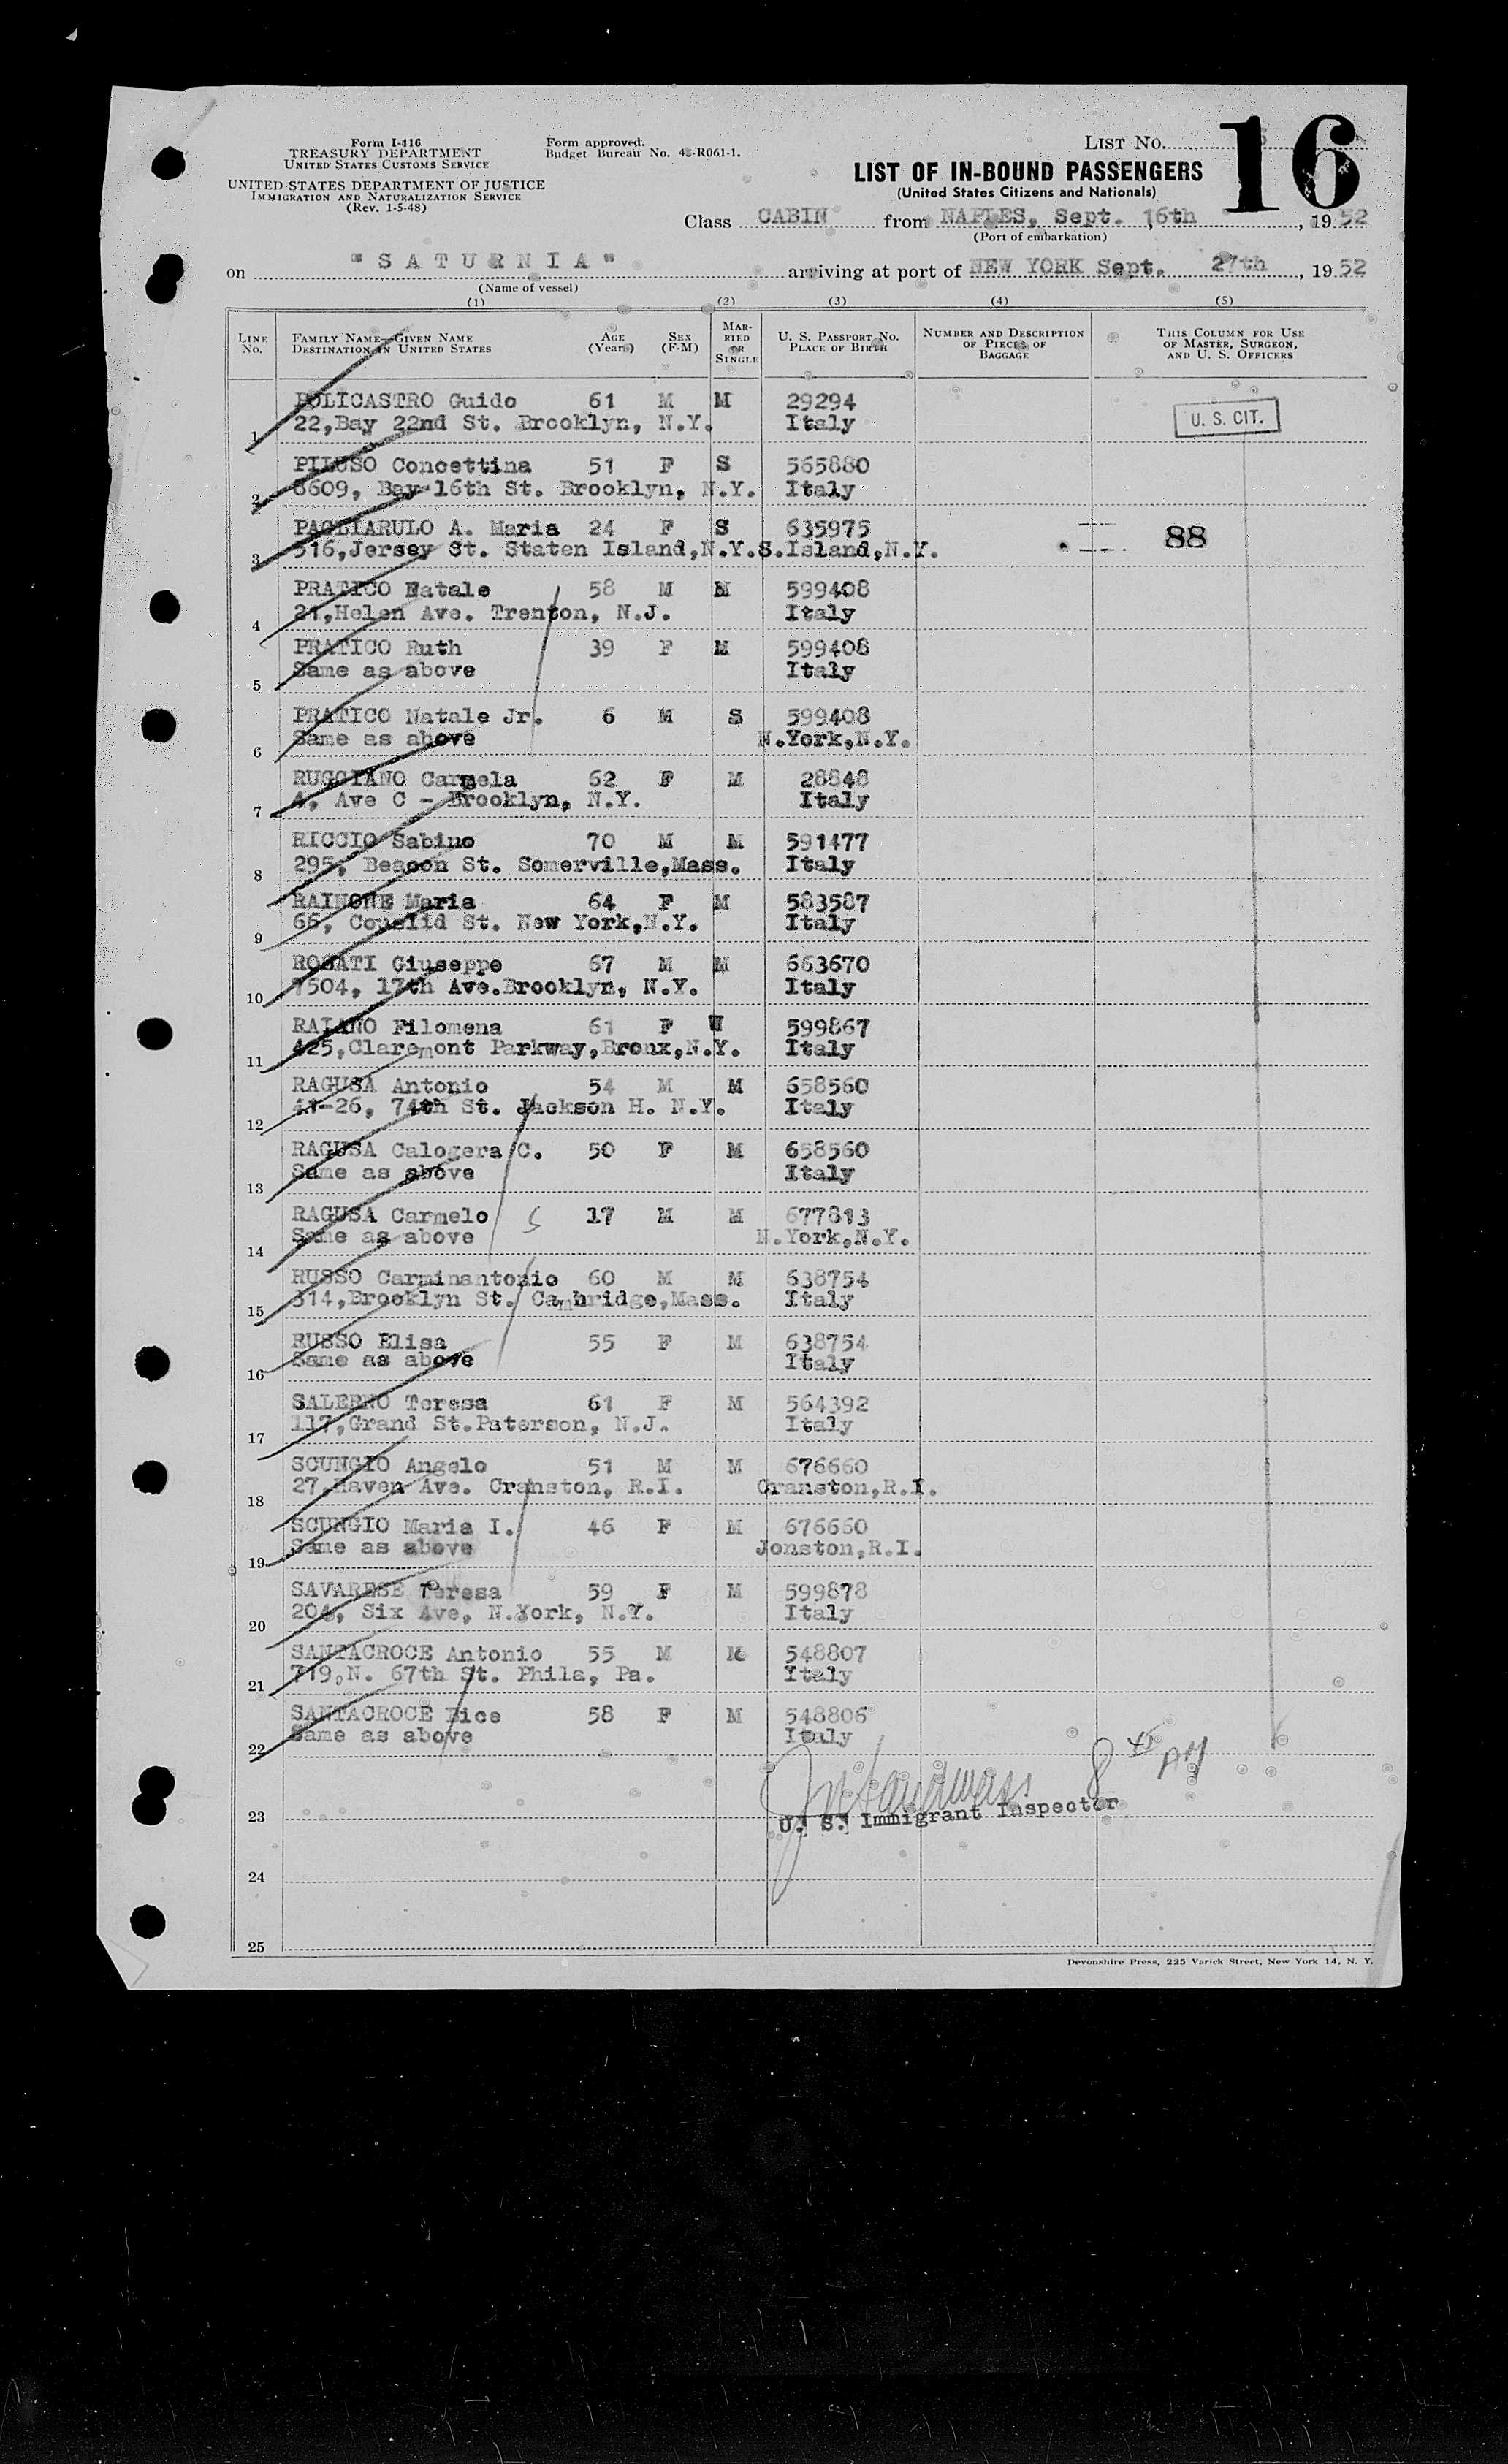 Form I-416
TREASURY DEPARTMENT
UNITED STATES CUSTOMS SERVICE
UNITED STATES DEPARTMENT OF JUSTICE
IMMIGRATION AND NATURALIZATION SERVICE
(Rev. 1-5-48)
Form approved.
Budget Bureau No. 43-R061-1.
LIST No. 16
LIST OF IN-BOUND PASSENGERS
(United States Citizens and Nationals)
Class CABIN from NAPLES, Sept. 16th, 1952
(Port of embarkation)
on "SATURNIA" arriving at port of NEW YORK Sept. 27th, 1952
(Name of vessel)
(1) (2) (3) (4) (5)
LINE No. FAMILY NAME—GIVEN NAME DESTINATION IN UNITED STATES AGE (Years) SEX (F-M) MARRIED OR SINGLE U. S. PASSPORT No. PLACE OF BIRTH NUMBER AND DESCRIPTION OF PIECES OF BAGGAGE THIS COLUMN FOR USE OF MASTER, SURGEON, AND U. S. OFFICERS
POLICASTRO Guido 61 M M 29294
1 22,Bay 22nd St. Brooklyn, N.Y. Italy
U. S. CIT.
PILUSO Concettina 51 F S 565880
2 8609, Bay 16th St. Brooklyn, N.Y. Italy
PAGLIARULO A. Maria 24 F S 635975
3 516,Jersey St. Staten Island,N.Y. S.Island,N.Y. 88
PRATICO Natale 58 M M 599408
4 21,Helen Ave. Trenton, N.J. Italy
PRATICO Ruth 39 F M 599408
5 Same as above Italy
PRATICO Natale Jr. 6 M S 599408
6 Same as above N.York,N.Y.
RUGGIANO Carmela 62 F M 28848
7 4, Ave C - Brooklyn, N.Y. Italy
RICCIO Sabino 70 M M 591477
8 295, Beacon St. Somerville,Mass. Italy
RAIMONE Maria 64 F M 583587
9 66, Couslid St. New York,N.Y. Italy
ROSATI Giuseppe 67 M M 663670
10 7504, 17th Ave.Brooklyn, N.Y. Italy
RAIANO Filomena 61 F W 599867
11 425,Claremont Parkway,Bronx,N.Y. Italy
RAGUSA Antonio 54 M M 658560
12 41-26, 74th St. Jackson H. N.Y. Italy
RAGUSA Calogera C. 50 F M 658560
13 Same as above Italy
RAGUSA Carmelo S 17 M M 677813
14 Same as above N.York,N.Y.
RUSSO Carminantonio 60 M M 638754
15 314,Brooklyn St. Cambridge,Mass. Italy
RUSSO Elisa 55 F M 638754
16 Same as above Italy
SALERNO Teresa 61 F M 564392
17 117,Grand St.Paterson, N.J. Italy
SCUNGIO Angelo 51 M M 676660
18 27,Haven Ave. Cranston, R.I. Cranston,R.I.
SCUNGIO Maria I. 46 F M 676660
19 Same as above Jonston,R.I.
SAVARESE Teresa 59 F M 599878
20 204, Six Ave, N.York, N.Y. Italy
SANTACROCE Antonio 55 M M 548807
21 719,N. 67th St. Phila, Pa. Italy
SANTACROCE Bice 58 F M 548806
22 Same as above Italy
23 U. S. Immigrant Inspector
24
25
Devonshire Press, 225 Varick Street, New York 14, N. Y.